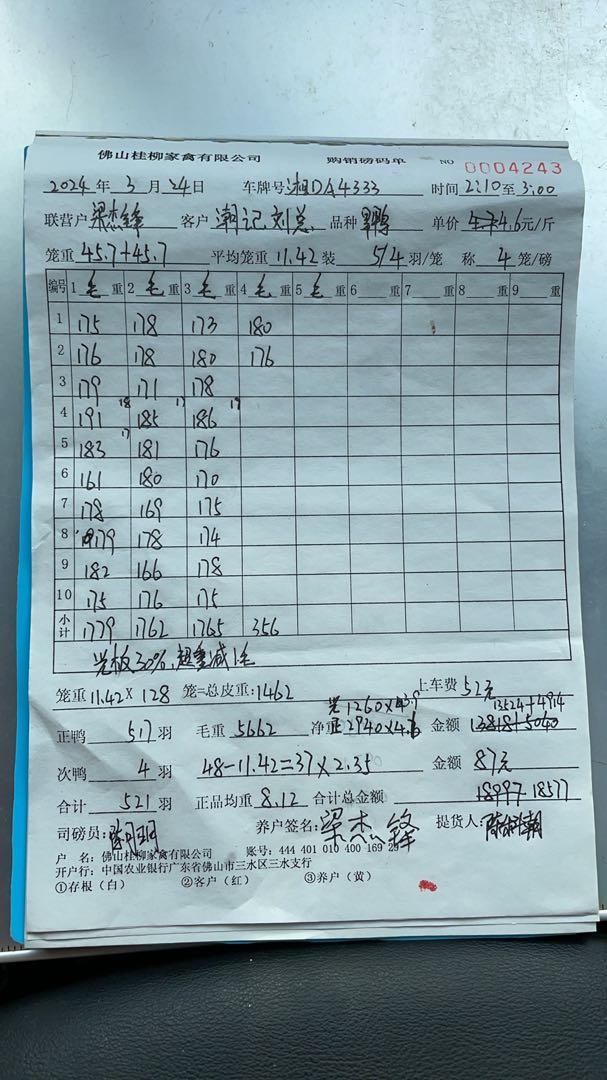 佛山桂柳家禽有限公司 购销磅码单 NO 0004243
2024 年 3 月 24 日 车牌号 湘DA4333 时间 2:10 至 3:00
联营户 梁杰锋 客户 潮记刘总 品种 单价 4.6元/斤
笼重 45.7+45.7 平均笼重 11.42 装 5/4 羽/笼 称 4 笼/磅
编号 1 毛 重 2 毛 重 3 毛 重 4 毛 重 5 毛 重 6 重 7 重 8 重 9 重
1 175 178 173 180
2 176 178 180 176
3 179 171 178
4 191 18 185 17 186 17
5 183 17 181 176
6 161 180 170
7 178 169 175
8 179 178 174
9 182 166 178
10 175 176 175
小计 1779 1762 1765 356
光板30%,超重减1毛
笼重 11.42×128 笼=总皮重: 1462 上车费 52元
光1260×3.9 13524+4914
正鸭 517 羽 毛重 5662 净重 正2940×4.6 金额 13818+5040
次鸭 4 羽 48-11.42=37×2.35 金额 87元
合计 521 羽 正品均重 8.12 合计总金额 18997 18577
司磅员: 养户签名: 梁杰锋 提货人:
户 名:佛山桂柳家禽有限公司 账号:444 401 010 400 169 29
开户行:中国农业银行广东省佛山市三水区三水支行
①存根(白) ②客户(红) ③养户(黄)